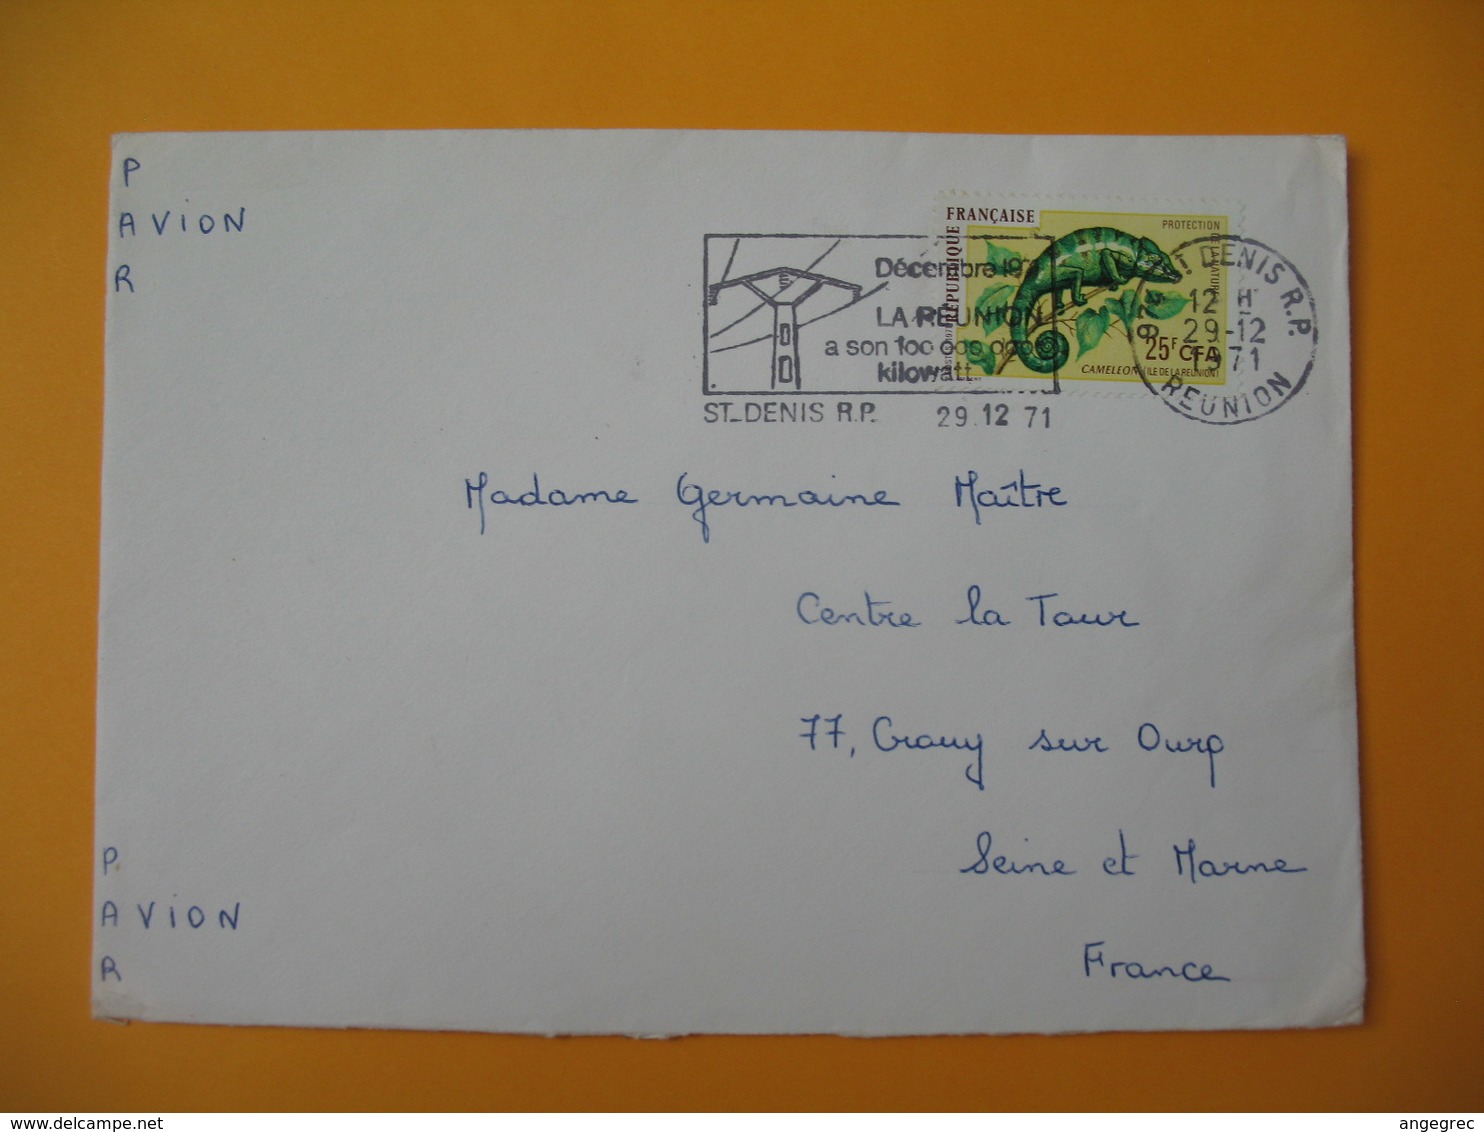 P
AVION
R
RÉPUBLIQUE FRANÇAISE
PROTECTION DE LA NATURE
25F CFA
CAMELEON (ILE DE LA REUNION)
Décembre 197
LA REUNION
a son 100 000 000
kilowatt
ST_DENIS R.P. 29.12 71
974 ST DENIS R.P.
12 H
29-12
1971
REUNION
Madame Germaine Maître
Centre la Tour
77, Crouy sur Ourq
Seine et Marne
France
P
AVION
R
delcampe.net
angegrec